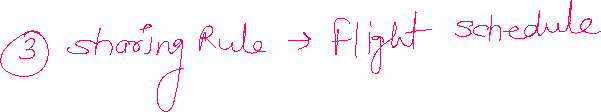 ③ sharing Rule → flight schedule